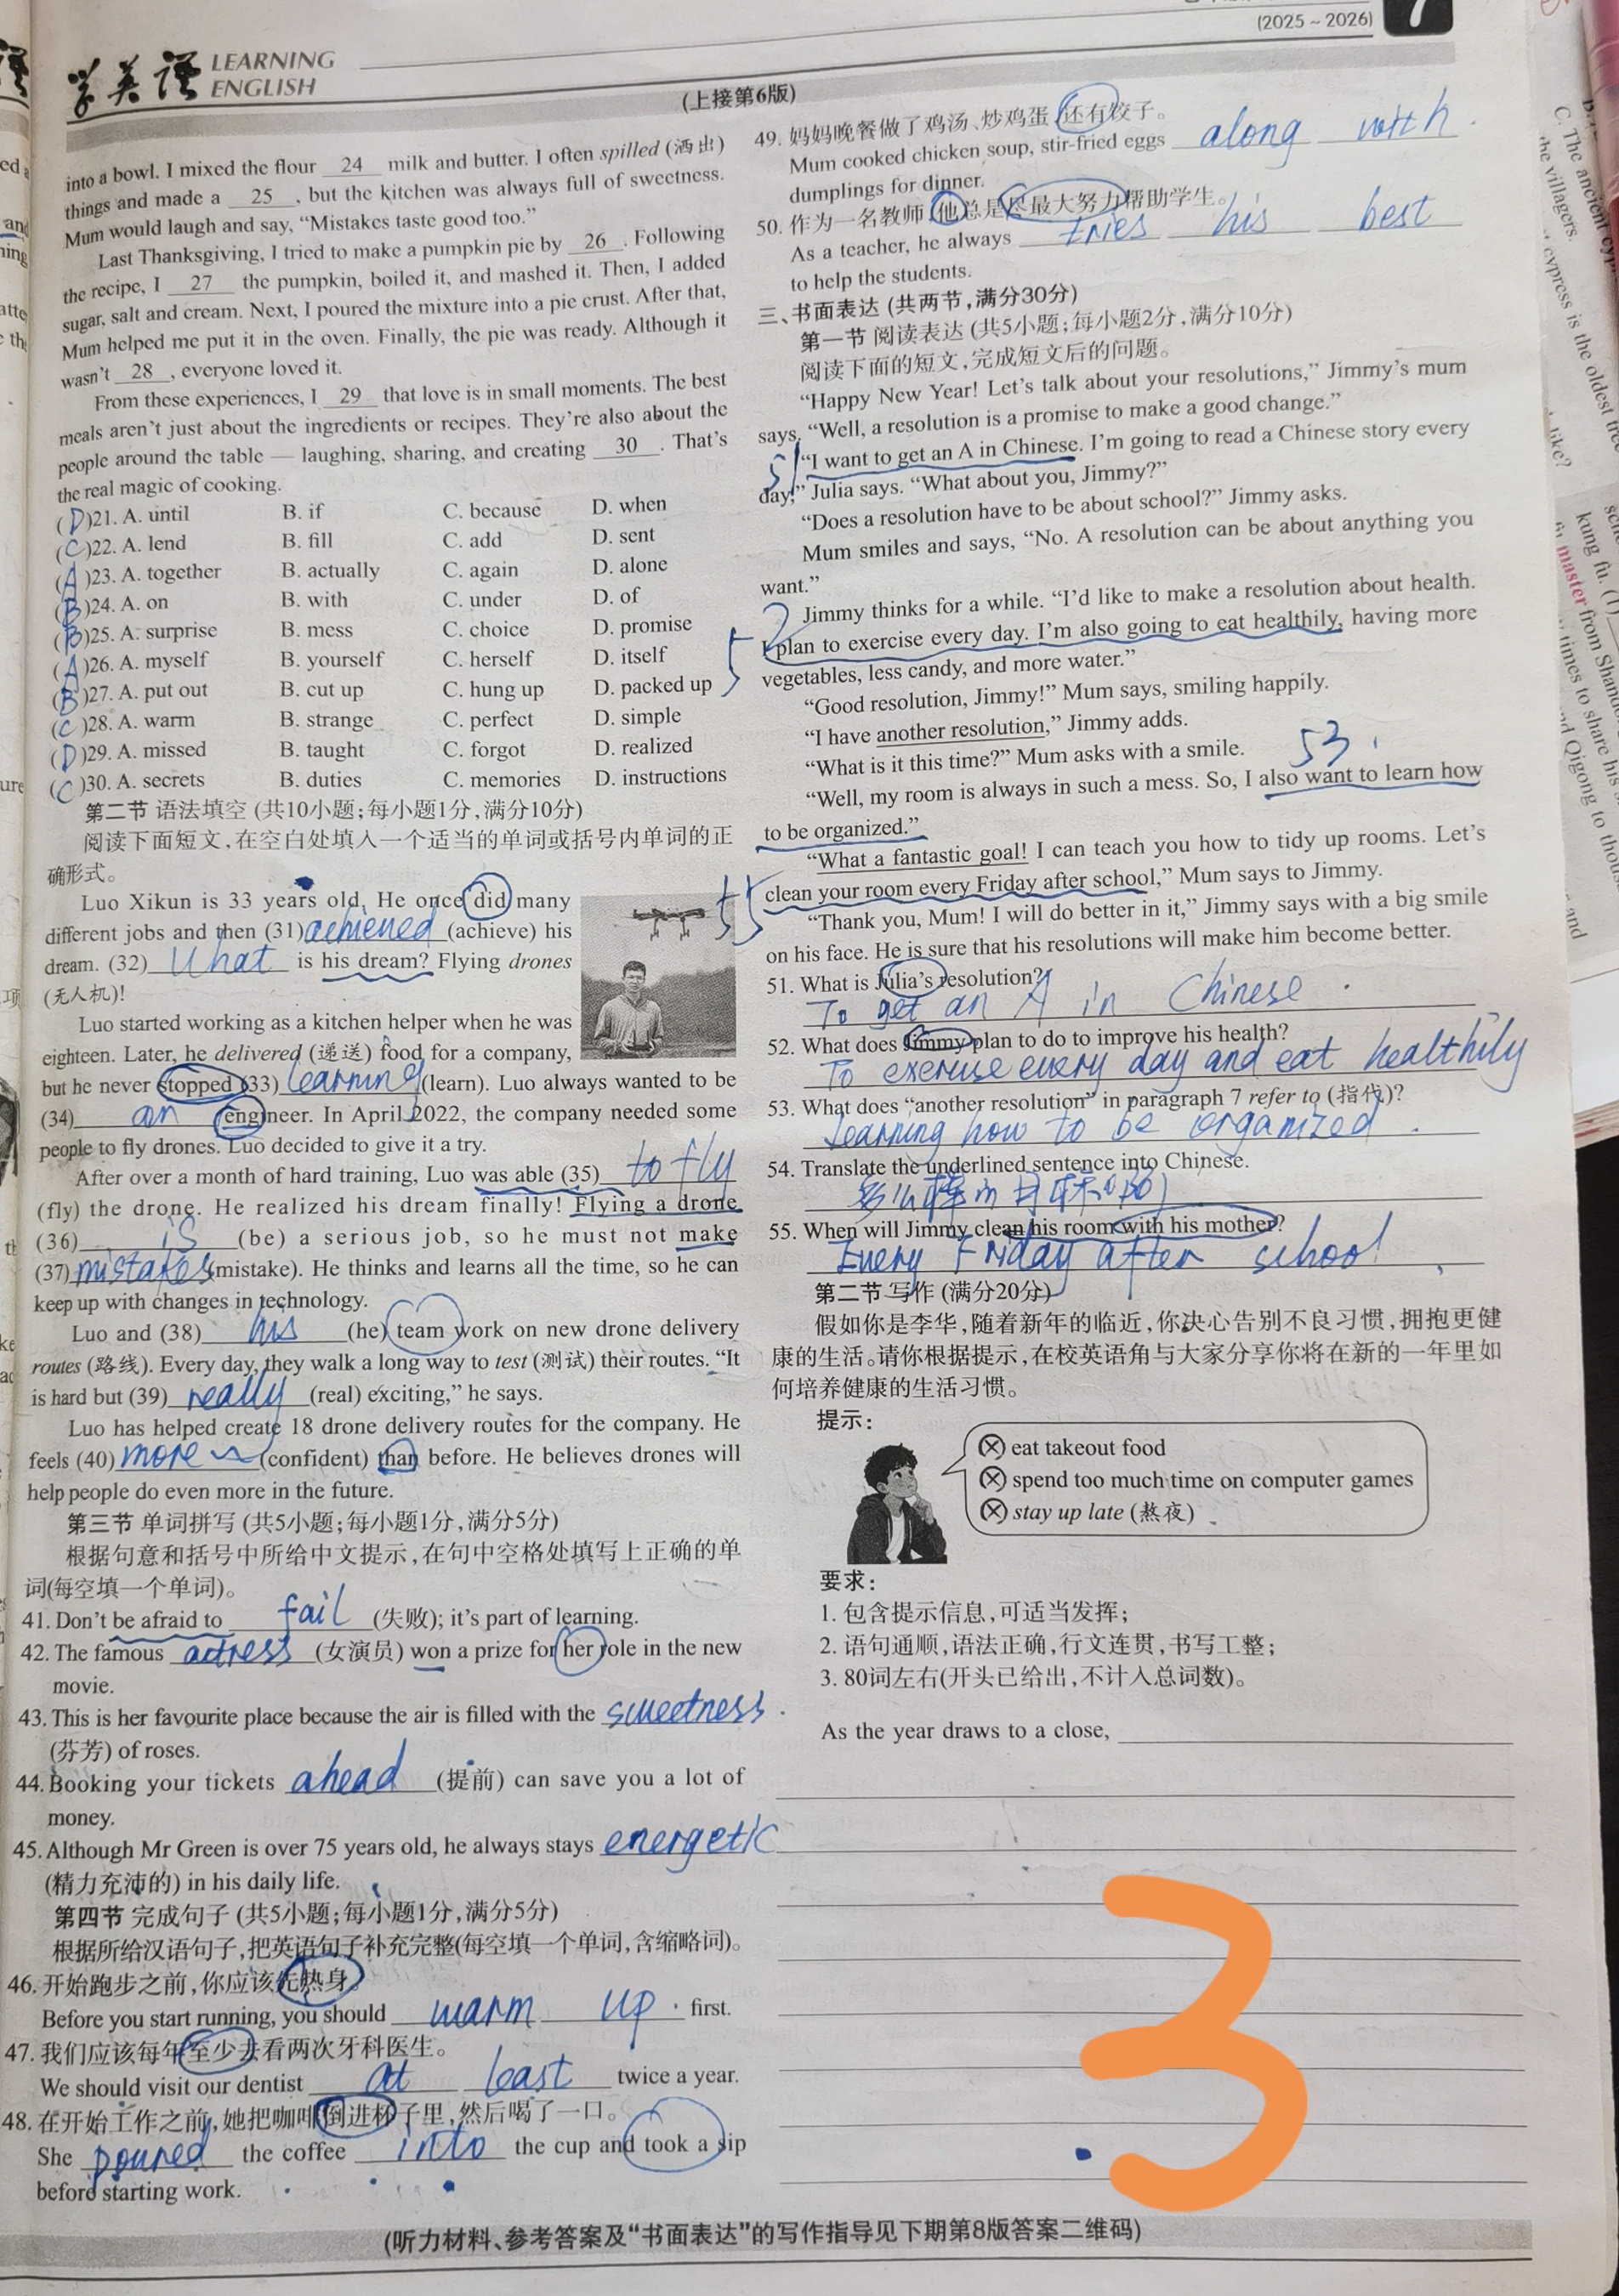 (2025～2026)
7
学英語 LEARNING ENGLISH
(上接第6版)
into a bowl. I mixed the flour 24 milk and butter. I often spilled (洒出)
things and made a 25 , but the kitchen was always full of sweetness.
Mum would laugh and say, “Mistakes taste good too.”
Last Thanksgiving, I tried to make a pumpkin pie by 26 . Following
the recipe, I 27 the pumpkin, boiled it, and mashed it. Then, I added
sugar, salt and cream. Next, I poured the mixture into a pie crust. After that,
Mum helped me put it in the oven. Finally, the pie was ready. Although it
wasn’t 28 , everyone loved it.
From these experiences, I 29 that love is in small moments. The best
meals aren’t just about the ingredients or recipes. They’re also about the
people around the table — laughing, sharing, and creating 30 . That’s
the real magic of cooking.
(D)21. A. until B. if C. because D. when
(C)22. A. lend B. fill C. add D. sent
(A)23. A. together B. actually C. again D. alone
(B)24. A. on B. with C. under D. of
(B)25. A. surprise B. mess C. choice D. promise
(A)26. A. myself B. yourself C. herself D. itself
(B)27. A. put out B. cut up C. hung up D. packed up
(C)28. A. warm B. strange C. perfect D. simple
(D)29. A. missed B. taught C. forgot D. realized
(C)30. A. secrets B. duties C. memories D. instructions
第二节 语法填空 (共10小题;每小题1分,满分10分)
阅读下面短文,在空白处填入一个适当的单词或括号内单词的正
确形式。
Luo Xikun is 33 years old. He once did many
different jobs and then (31) achieved (achieve) his
dream. (32) What is his dream? Flying drones
(无人机)!
Luo started working as a kitchen helper when he was
eighteen. Later, he delivered (递送) food for a company,
but he never stopped (33) learning (learn). Luo always wanted to be
(34) an engineer. In April 2022, the company needed some
people to fly drones. Luo decided to give it a try.
After over a month of hard training, Luo was able (35) to fly
(fly) the drone. He realized his dream finally! Flying a drone
(36) is (be) a serious job, so he must not make
(37) mistakes (mistake). He thinks and learns all the time, so he can
keep up with changes in technology.
Luo and (38) his (he) team work on new drone delivery
routes (路线). Every day, they walk a long way to test (测试) their routes. “It
is hard but (39) really (real) exciting,” he says.
Luo has helped create 18 drone delivery routes for the company. He
feels (40) more ~ (confident) than before. He believes drones will
help people do even more in the future.
第三节 单词拼写 (共5小题;每小题1分,满分5分)
根据句意和括号中所给中文提示,在句中空格处填写上正确的单
词(每空填一个单词)。
41. Don’t be afraid to fail (失败); it’s part of learning.
42. The famous actress (女演员) won a prize for her role in the new
movie.
43. This is her favourite place because the air is filled with the sweetness
(芬芳) of roses.
44. Booking your tickets ahead (提前) can save you a lot of
money.
45. Although Mr Green is over 75 years old, he always stays energetic
(精力充沛的) in his daily life.
第四节 完成句子 (共5小题;每小题1分,满分5分)
根据所给汉语句子,把英语句子补充完整(每空填一个单词,含缩略词)。
46. 开始跑步之前,你应该先热身。
Before you start running, you should warm up first.
47. 我们应该每年至少去看两次牙科医生。
We should visit our dentist at least twice a year.
48. 在开始工作之前,她把咖啡倒进杯子里,然后喝了一口。
She poured the coffee into the cup and took a sip
before starting work.
49. 妈妈晚餐做了鸡汤、炒鸡蛋,还有饺子。
Mum cooked chicken soup, stir-fried eggs along with
dumplings for dinner.
50. 作为一名教师,他总是尽最大努力帮助学生。
As a teacher, he always tries his best
to help the students.
三、书面表达 (共两节,满分30分)
第一节 阅读表达 (共5小题;每小题2分,满分10分)
阅读下面的短文,完成短文后的问题。
“Happy New Year! Let’s talk about your resolutions,” Jimmy’s mum
says. “Well, a resolution is a promise to make a good change.”
51 “I want to get an A in Chinese. I’m going to read a Chinese story every
day,” Julia says. “What about you, Jimmy?”
“Does a resolution have to be about school?” Jimmy asks.
Mum smiles and says, “No. A resolution can be about anything you
want.”
52 Jimmy thinks for a while. “I’d like to make a resolution about health.
I plan to exercise every day. I’m also going to eat healthily, having more
vegetables, less candy, and more water.”
“Good resolution, Jimmy!” Mum says, smiling happily.
“I have another resolution,” Jimmy adds.
“What is it this time?” Mum asks with a smile.
53.
“Well, my room is always in such a mess. So, I also want to learn how
to be organized.”
“What a fantastic goal! I can teach you how to tidy up rooms. Let’s
55 clean your room every Friday after school,” Mum says to Jimmy.
“Thank you, Mum! I will do better in it,” Jimmy says with a big smile
on his face. He is sure that his resolutions will make him become better.
51. What is Julia’s resolution?
To get an A in Chinese .
52. What does Jimmy plan to do to improve his health?
To exercise every day and eat healthily
53. What does “another resolution” in paragraph 7 refer to (指代)?
Learning how to be organized .
54. Translate the underlined sentence into Chinese.
55. When will Jimmy clean his room with his mother?
Every Friday after school .
第二节 写作 (满分20分)
假如你是李华,随着新年的临近,你决心告别不良习惯,拥抱更健
康的生活。请你根据提示,在校英语角与大家分享你将在新的一年里如
何培养健康的生活习惯。
提示:
eat takeout food
spend too much time on computer games
stay up late (熬夜)
要求:
1. 包含提示信息,可适当发挥;
2. 语句通顺,语法正确,行文连贯,书写工整;
3. 80词左右(开头已给出,不计入总词数)。
As the year draws to a close,
3
(听力材料、参考答案及“书面表达”的写作指导见下期第8版答案二维码)